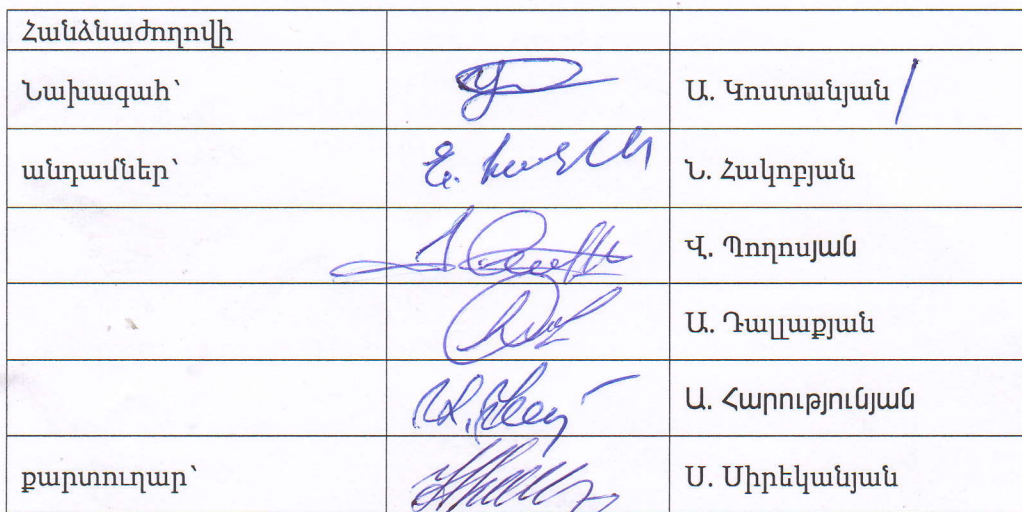 Հանձնաժողովի
Նախագահ՝ Ա. Կոստանյան
անդամներ՝ Ն. Հակոբյան
Վ. Պողոսյան
Ա. Դալլաքյան
Ա. Հարությունյան
քարտուղար՝ Ս. Սիրեկանյան